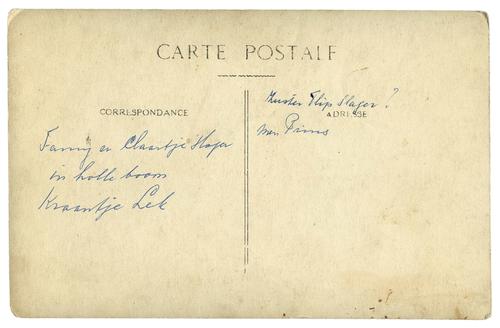 CARTE POSTALE
CORRESPONDANCE
Fanny en Claartje Slager
in holle boom
Kraantje Lek
Zuster Flip Slager?
ADRESSE
Mevr. Prins